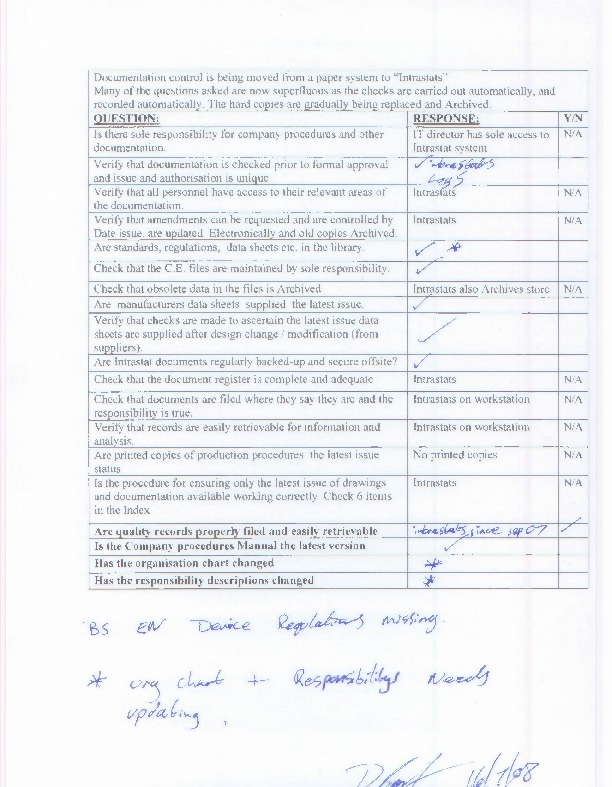 Documentation control is being moved from a paper system to "Intrastats"
Many of the questions asked are now superfluous as the checks are carried out automatically, and
recorded automatically. The hard copies are gradually being replaced and Archived.
QUESTION: RESPONSE: Y/N
Is there sole responsibility for company procedures and other IT director has sole access to N/A
documentation. Intrastat system
Verify that documentation is checked prior to formal approval ✓ intrastats
and issue and authorisation is unique Logs
Verify that all personnel have access to their relevant areas of Intrastats N/A
the documentation.
Verify that amendments can be requested and are controlled by Intrastats N/A
Date issue, are updated Electronically and old copies Archived.
Are standards, regulations, data sheets etc. in the library. ✓ *
Check that the C.E. files are maintained by sole responsibility. ✓
Check that obsolete data in the files is Archived Intrastats also Archives store N/A
Are manufacturers data sheets supplied the latest issue. ✓
Verify that checks are made to ascertain the latest issue data
sheets are supplied after design change / modification (from ✓
suppliers).
Are Intrastat documents regularly backed-up and secure offsite? ✓
Check that the document register is complete and adequate Intrastats N/A
Check that documents are filed where they say they are and the Intrastats on workstation N/A
responsibility is true.
Verify that records are easily retrievable for information and Intrastats on workstation N/A
analysis.
Are printed copies of production procedures the latest issue No printed copies N/A
status
Is the procedure for ensuring only the latest issue of drawings Intrastats N/A
and documentation available working correctly Check 6 items
in the Index
Are quality records properly filed and easily retrievable intrastats since sep 07 ✓
Is the Company procedures Manual the latest version ✓
Has the organisation chart changed *
Has the responsibility descriptions changed *
BS EN Device Regulations missing.
* org chart + Responsibilitys Needs
updating.
16/1/08